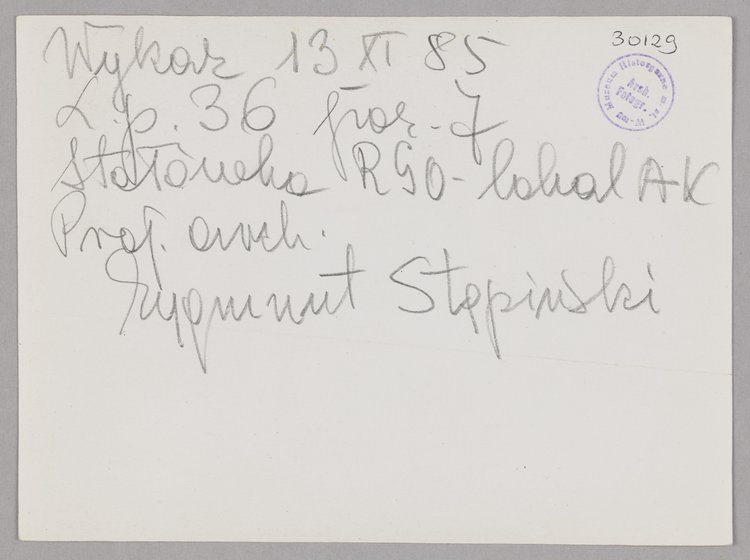 30129
Muzeum Historyczne m. st. W-wy
Arch.
Fotogr.
Wykaz 13 XI 85
L.p. 36 poz. 7
Stołówka RGO - lokal AK
Proj. arch.
Zygmunt Stępiński